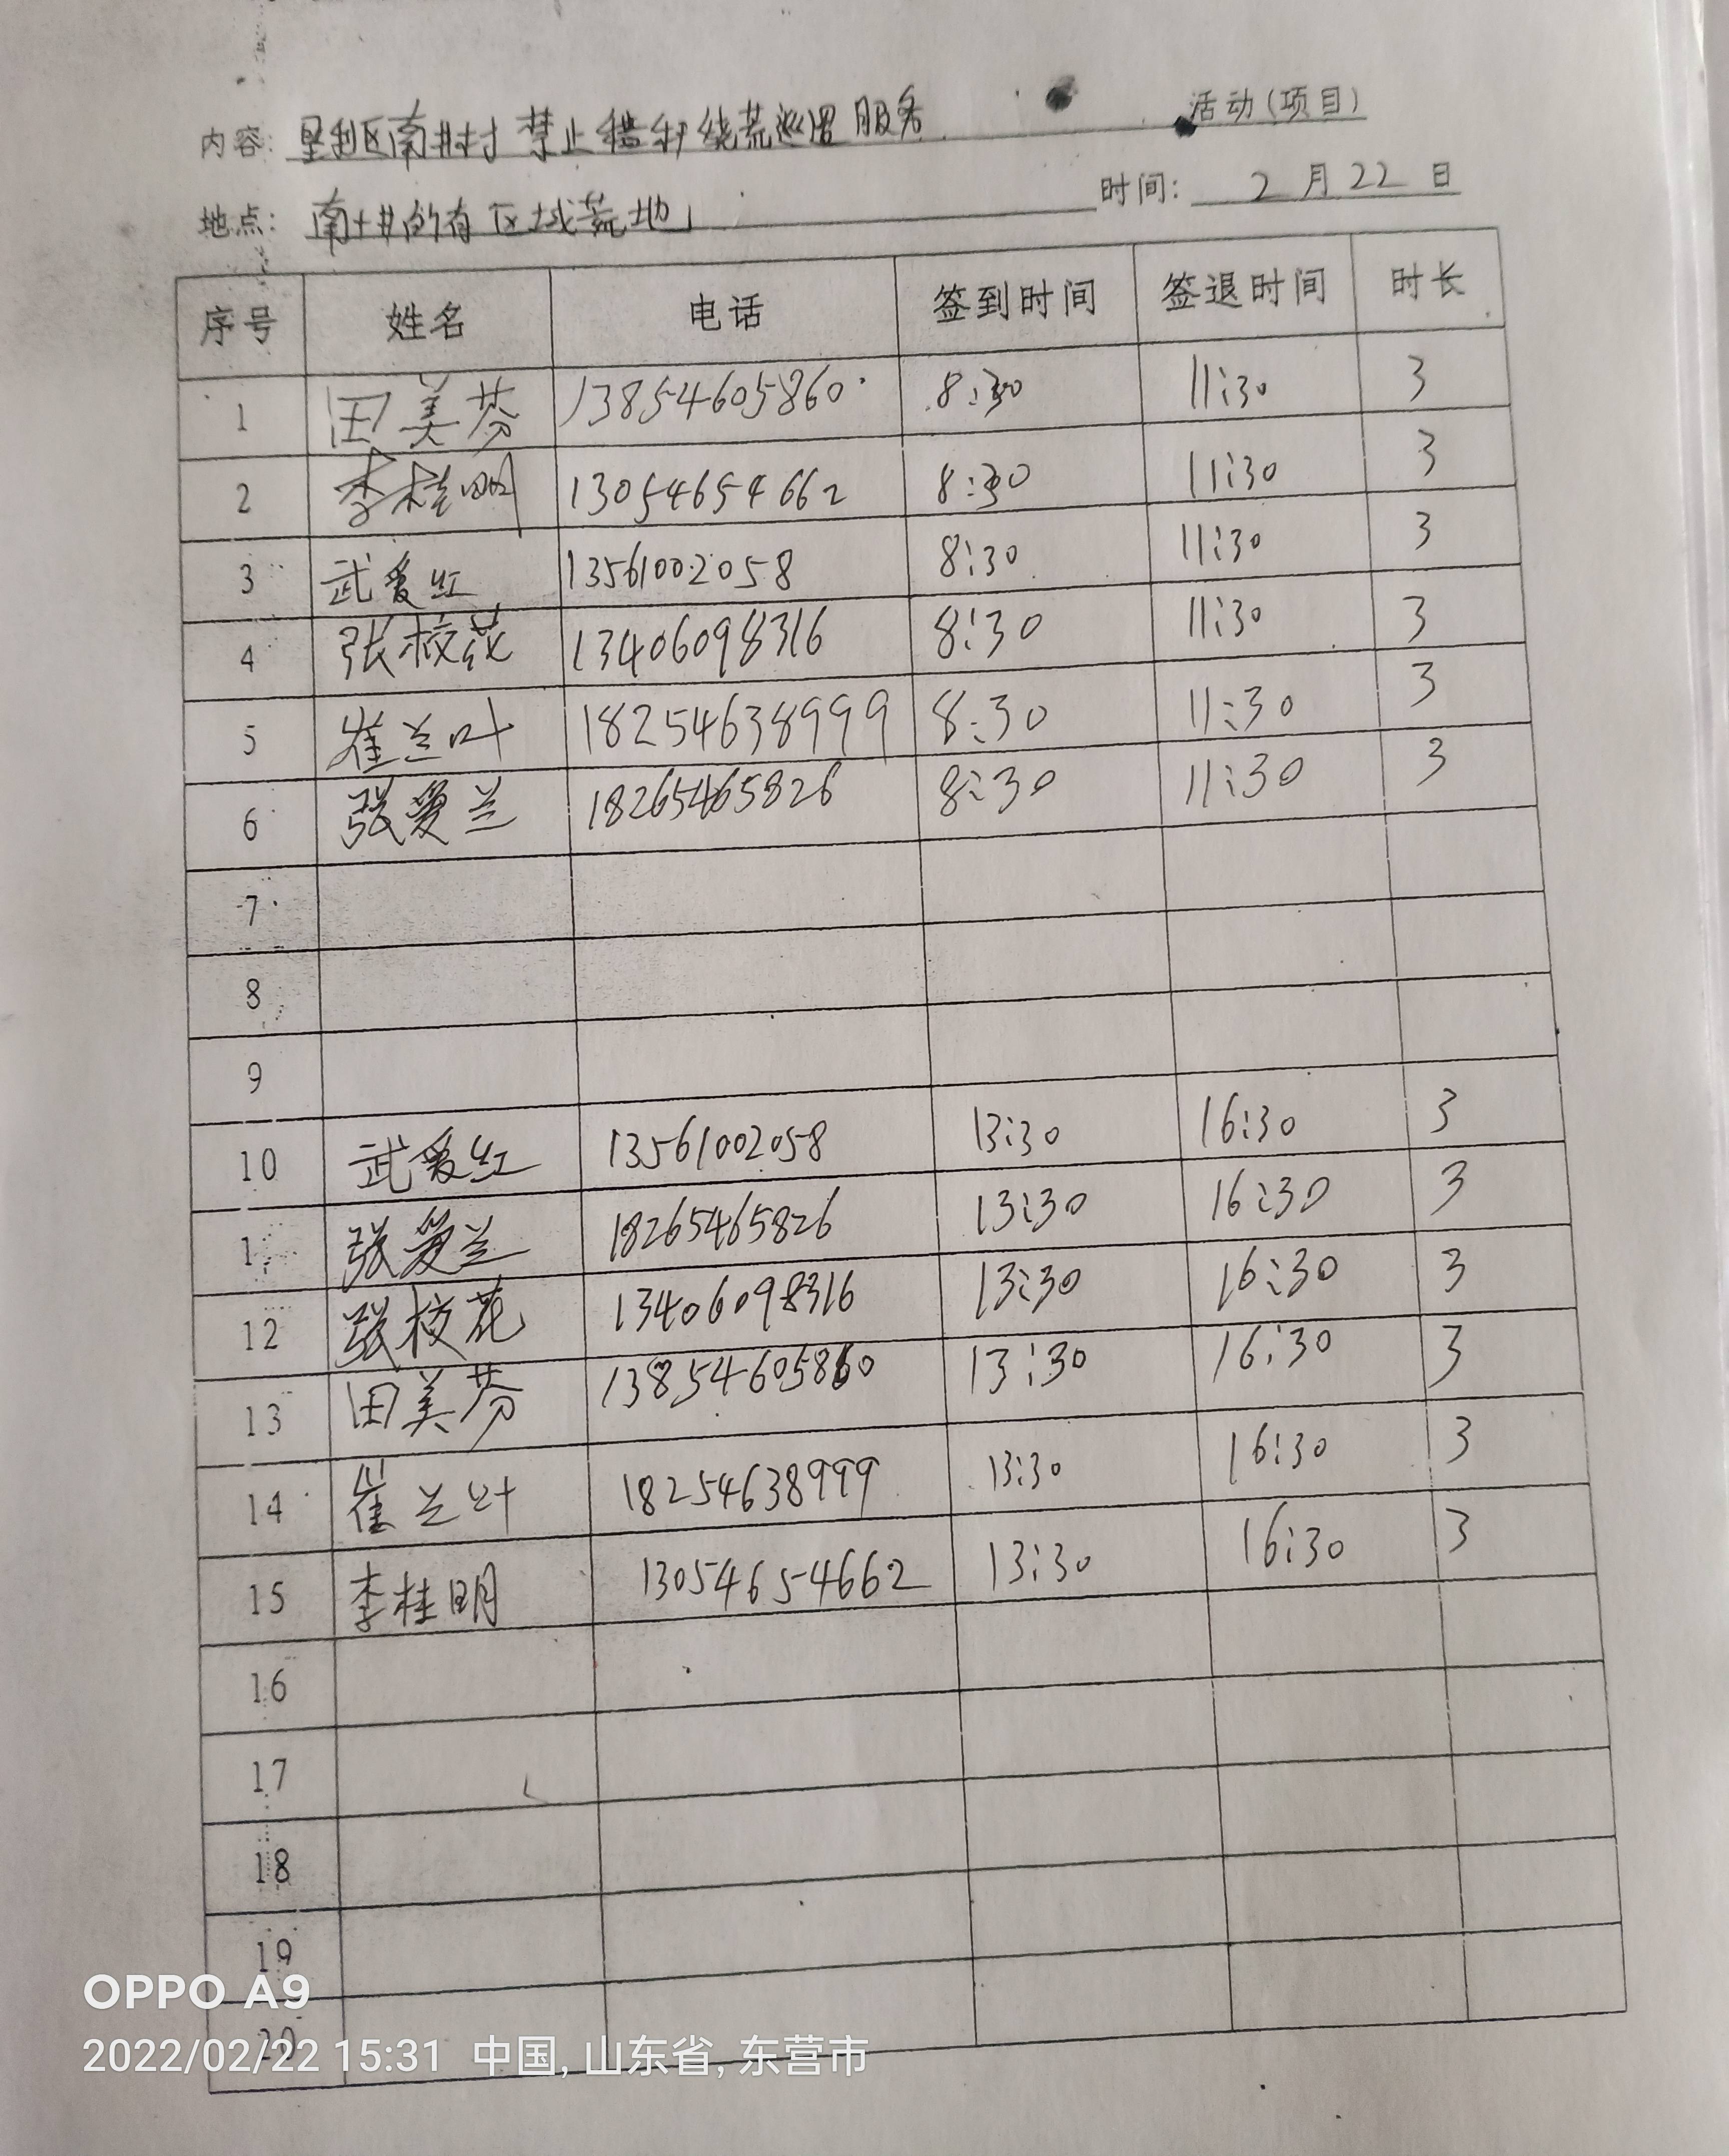 内容: 垦利区南井村 禁止 烧荒巡逻 服务 活动(项目)
地点: 南井的有区域荒地 时间: 2月22日
序号 姓名 电话 签到时间 签退时间 时长
1 田美芬 13854605860 8:30 11:30 3
2 李桂明 13054654662 8:30 11:30 3
3 武爱红 13561002058 8:30 11:30 3
4 张校花 13406098316 8:30 11:30 3
5 崔兰叶 18254638999 8:30 11:30 3
6 张爱兰 18265465826 8:30 11:30 3
7
8
9
10 武爱红 13561002058 13:30 16:30 3
11 张爱兰 18265465826 13:30 16:30 3
12 张校花 13406098316 13:30 16:30 3
13 田美芬 13854605860 13:30 16:30 3
14 崔兰叶 18254638999 13:30 16:30 3
15 李桂明 13054654662 13:30 16:30 3
16
17
18
19
20
OPPO A9
2022/02/22 15:31 中国, 山东省, 东营市